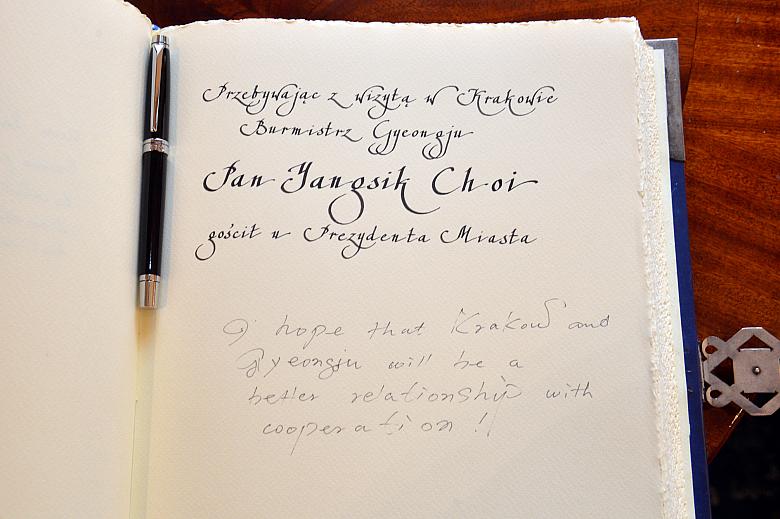 Przebywając z wizytą w Krakowie
Burmistrz Gyeongju
Pan Yangsik Choi
gościł u Prezydenta Miasta
I hope that Krakow and
Gyeongju will be a
better relationship with
cooperation !!